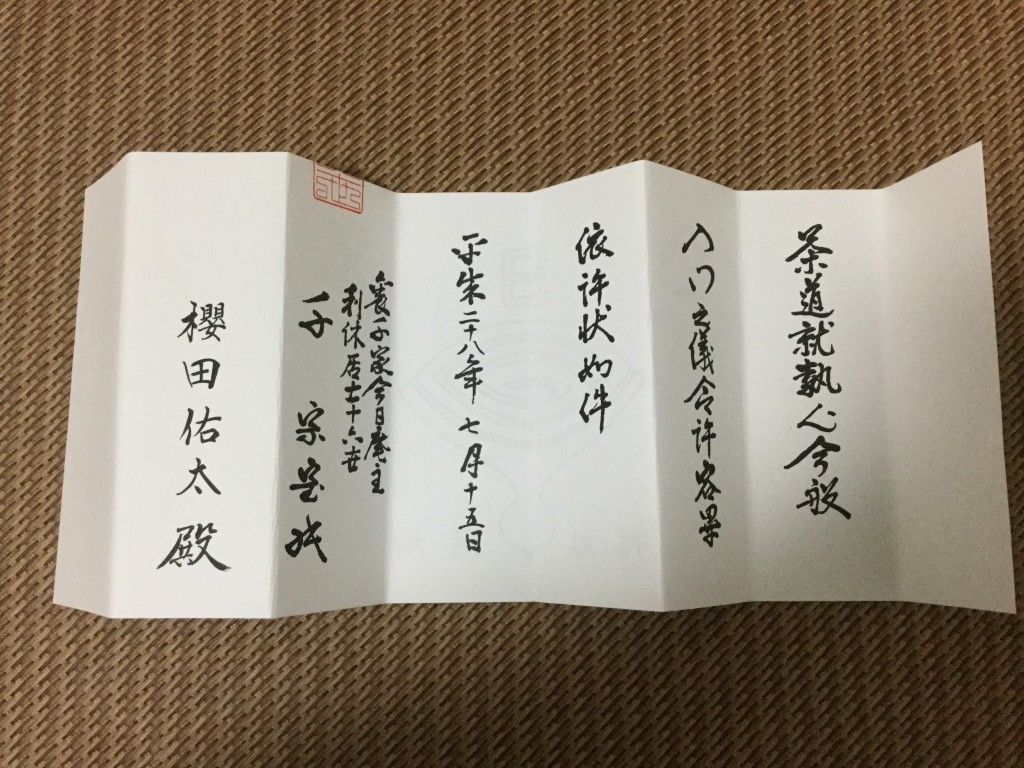 茶道就執心今般
入門之儀令許容畢
依許状如件
平成二十八年 七月十五日
裏千家今日庵主
利休居士十六世
千 宗室
櫻田佑太殿